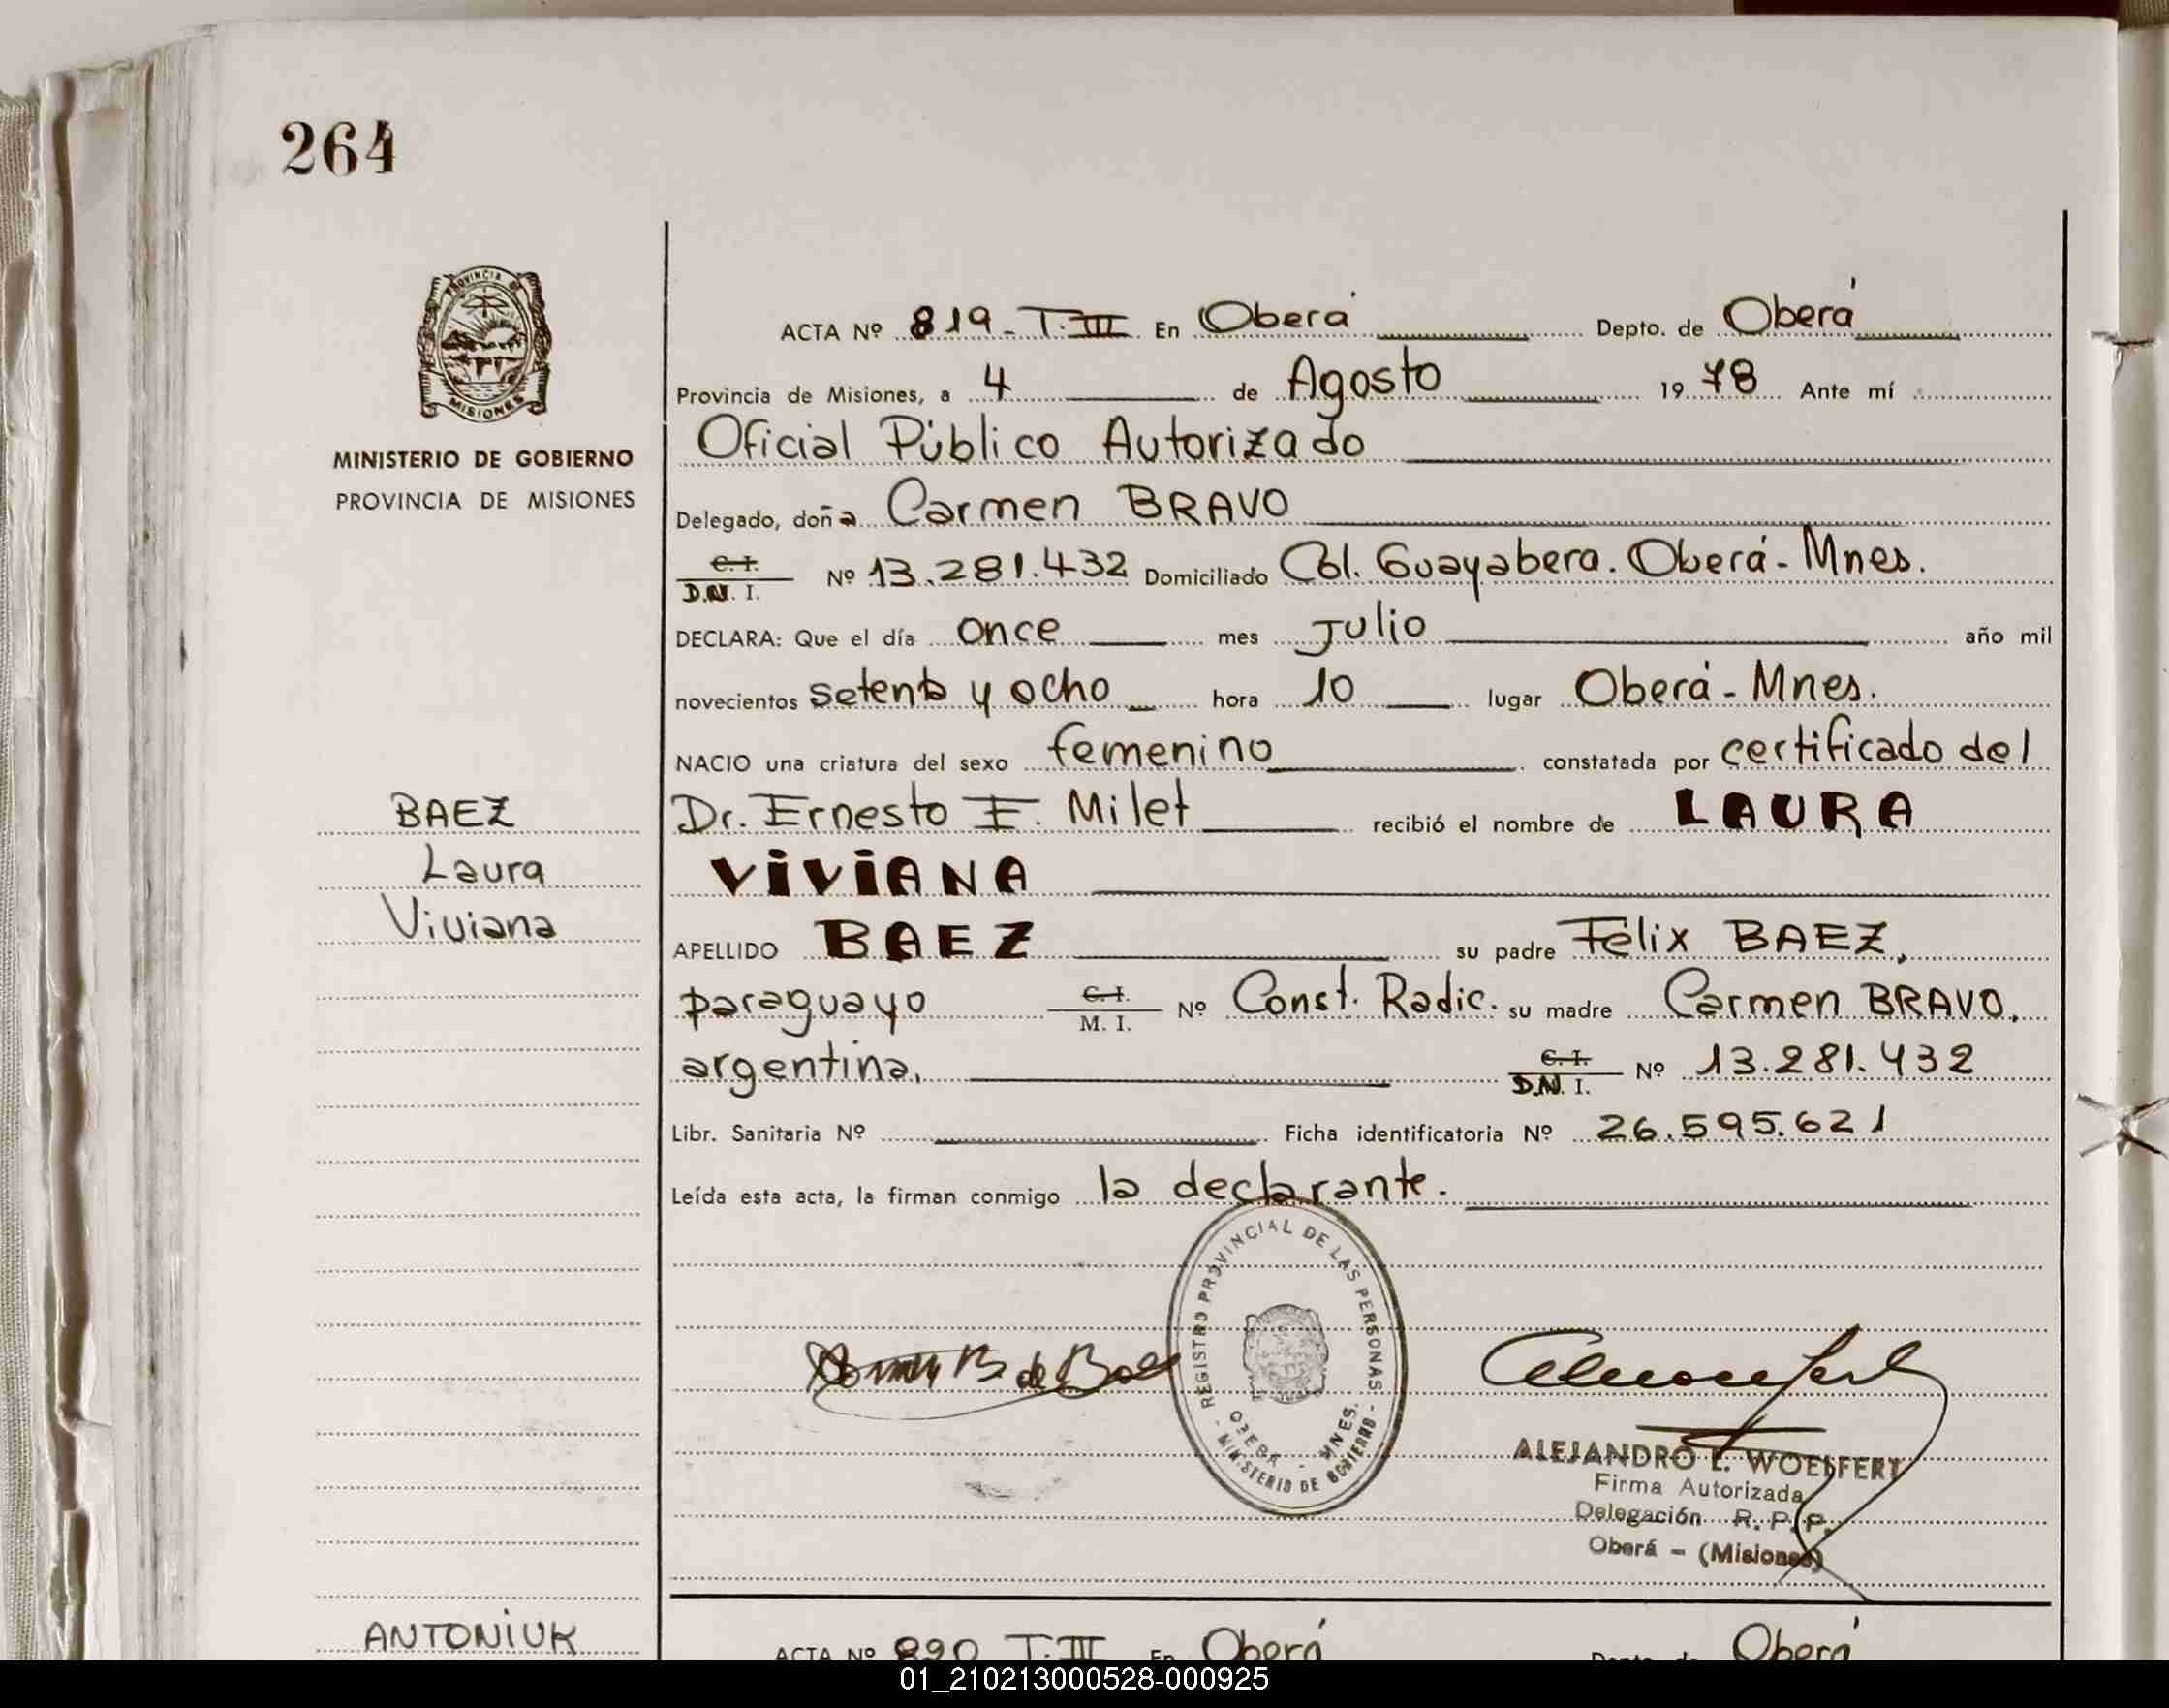 264
PROVINCIA DE
MISIONES
MINISTERIO DE GOBIERNO
PROVINCIA DE MISIONES
ACTA Nº 819 - T. III En Oberá Depto. de Oberá
Provincia de Misiones, a 4 de Agosto 1978 Ante mí
Oficial Público Autorizado
Delegado, doña Carmen BRAVO
C. I.
D.N. I. Nº 13.281.432 Domiciliado Col. Guayabera. Oberá - Mnes.
DECLARA: Que el día once mes Julio año mil
novecientos setenta y ocho hora 10 lugar Oberá - Mnes.
NACIO una criatura del sexo femenino constatada por certificado del
BAEZ
Laura
Viviana
Dr. Ernesto F. Milet recibió el nombre de LAURA
ViViANA
APELLIDO BAEZ su padre Félix BAEZ,
paraguayo C. I.
M. I. Nº Const. Radic. su madre Carmen BRAVO,
argentina, C. I.
D.N. I. Nº 13.281.432
Libr. Sanitaria Nº Ficha identificatoria Nº 26.595.621
Leída esta acta, la firman conmigo la declarante.
B de Baez
- REGISTRO PROVINCIAL DE LAS PERSONAS -
MINISTERIO DE GOBIERNO
MNES.
ALEJANDRO L. WOELFERT
Firma Autorizada
Delegación R. P. P.
Oberá - (Misiones)
ANTONiUK
ACTA Nº 820 T. III En Oberá Depto. de Oberá
01_210213000528-000925